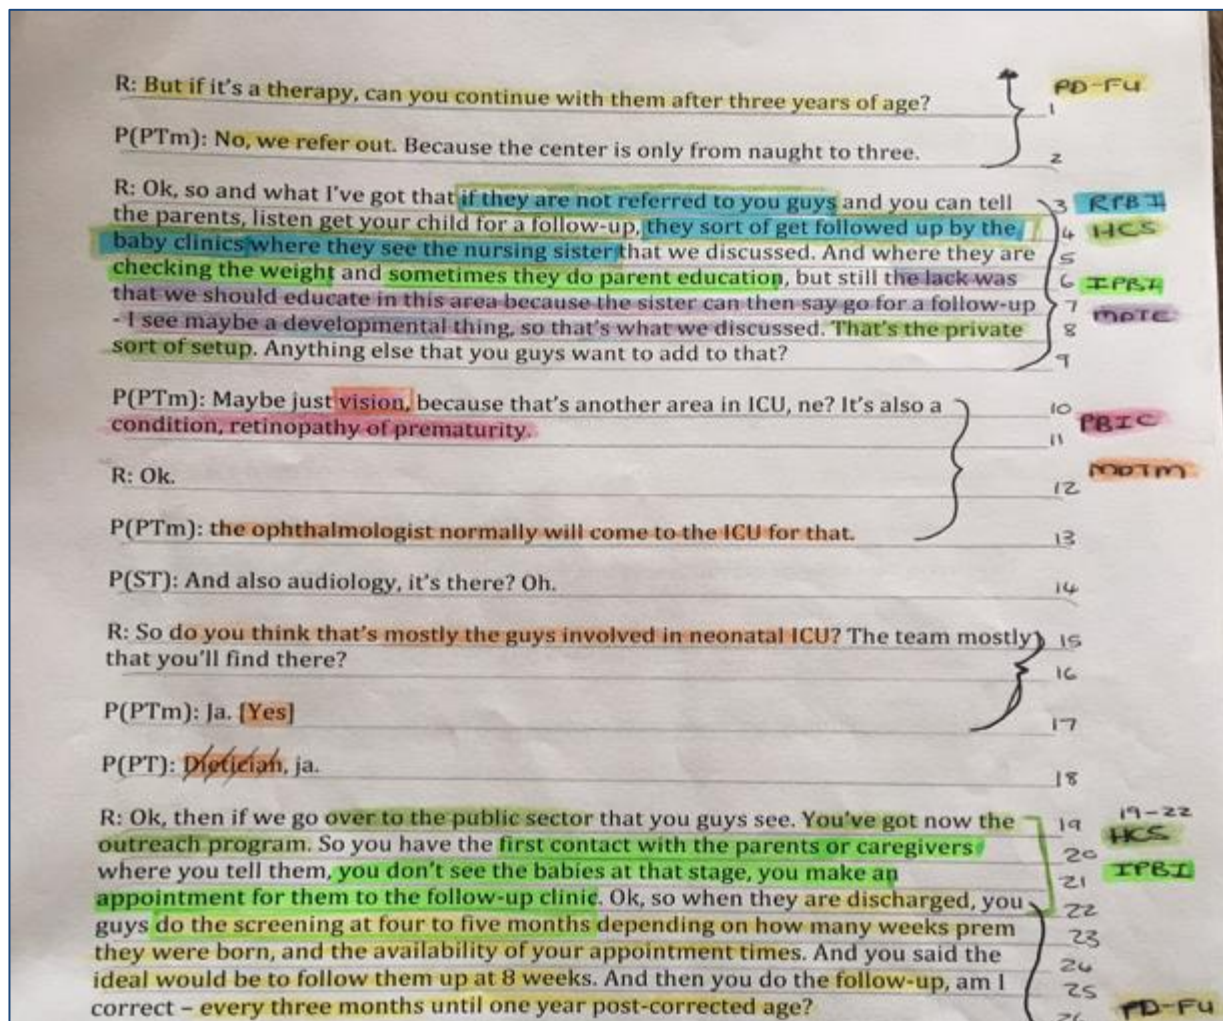 R: But if it's a therapy, can you continue with them after three years of age? 1 PD-FU
P(PTm): No, we refer out. Because the center is only from naught to three. 2
R: Ok, so and what I've got that if they are not referred to you guys and you can tell 3 RPBI
the parents, listen get your child for a follow-up, they sort of get followed up by the 4 HCS
baby clinics where they see the nursing sister that we discussed. And where they are 5
checking the weight and sometimes they do parent education, but still the lack was 6 IPBI
that we should educate in this area because the sister can then say go for a follow-up 7
- I see maybe a developmental thing, so that's what we discussed. That's the private 8
sort of setup. Anything else that you guys want to add to that? 9
P(PTm): Maybe just vision, because that's another area in ICU, ne? It's also a 10
condition, retinopathy of prematurity. 11 PBIC
R: Ok. 12 MDTM
P(PTm): the ophthalmologist normally will come to the ICU for that. 13
P(ST): And also audiology, it's there? Oh. 14
R: So do you think that's mostly the guys involved in neonatal ICU? The team mostly 15
that you'll find there? 16
P(PTm): Ja. [Yes] 17
P(PT): Dietician, ja. 18
R: Ok, then if we go over to the public sector that you guys see. You've got now the 19 19-22
outreach program. So you have the first contact with the parents or caregivers 20 HCS
where you tell them, you don't see the babies at that stage, you make an 21 IPBI
appointment for them to the follow-up clinic. Ok, so when they are discharged, you 22
guys do the screening at four to five months depending on how many weeks prem 23
they were born, and the availability of your appointment times. And you said the 24
ideal would be to follow them up at 8 weeks. And then you do the follow-up, am I 25
correct – every three months until one year post-corrected age? 26 PD-FU